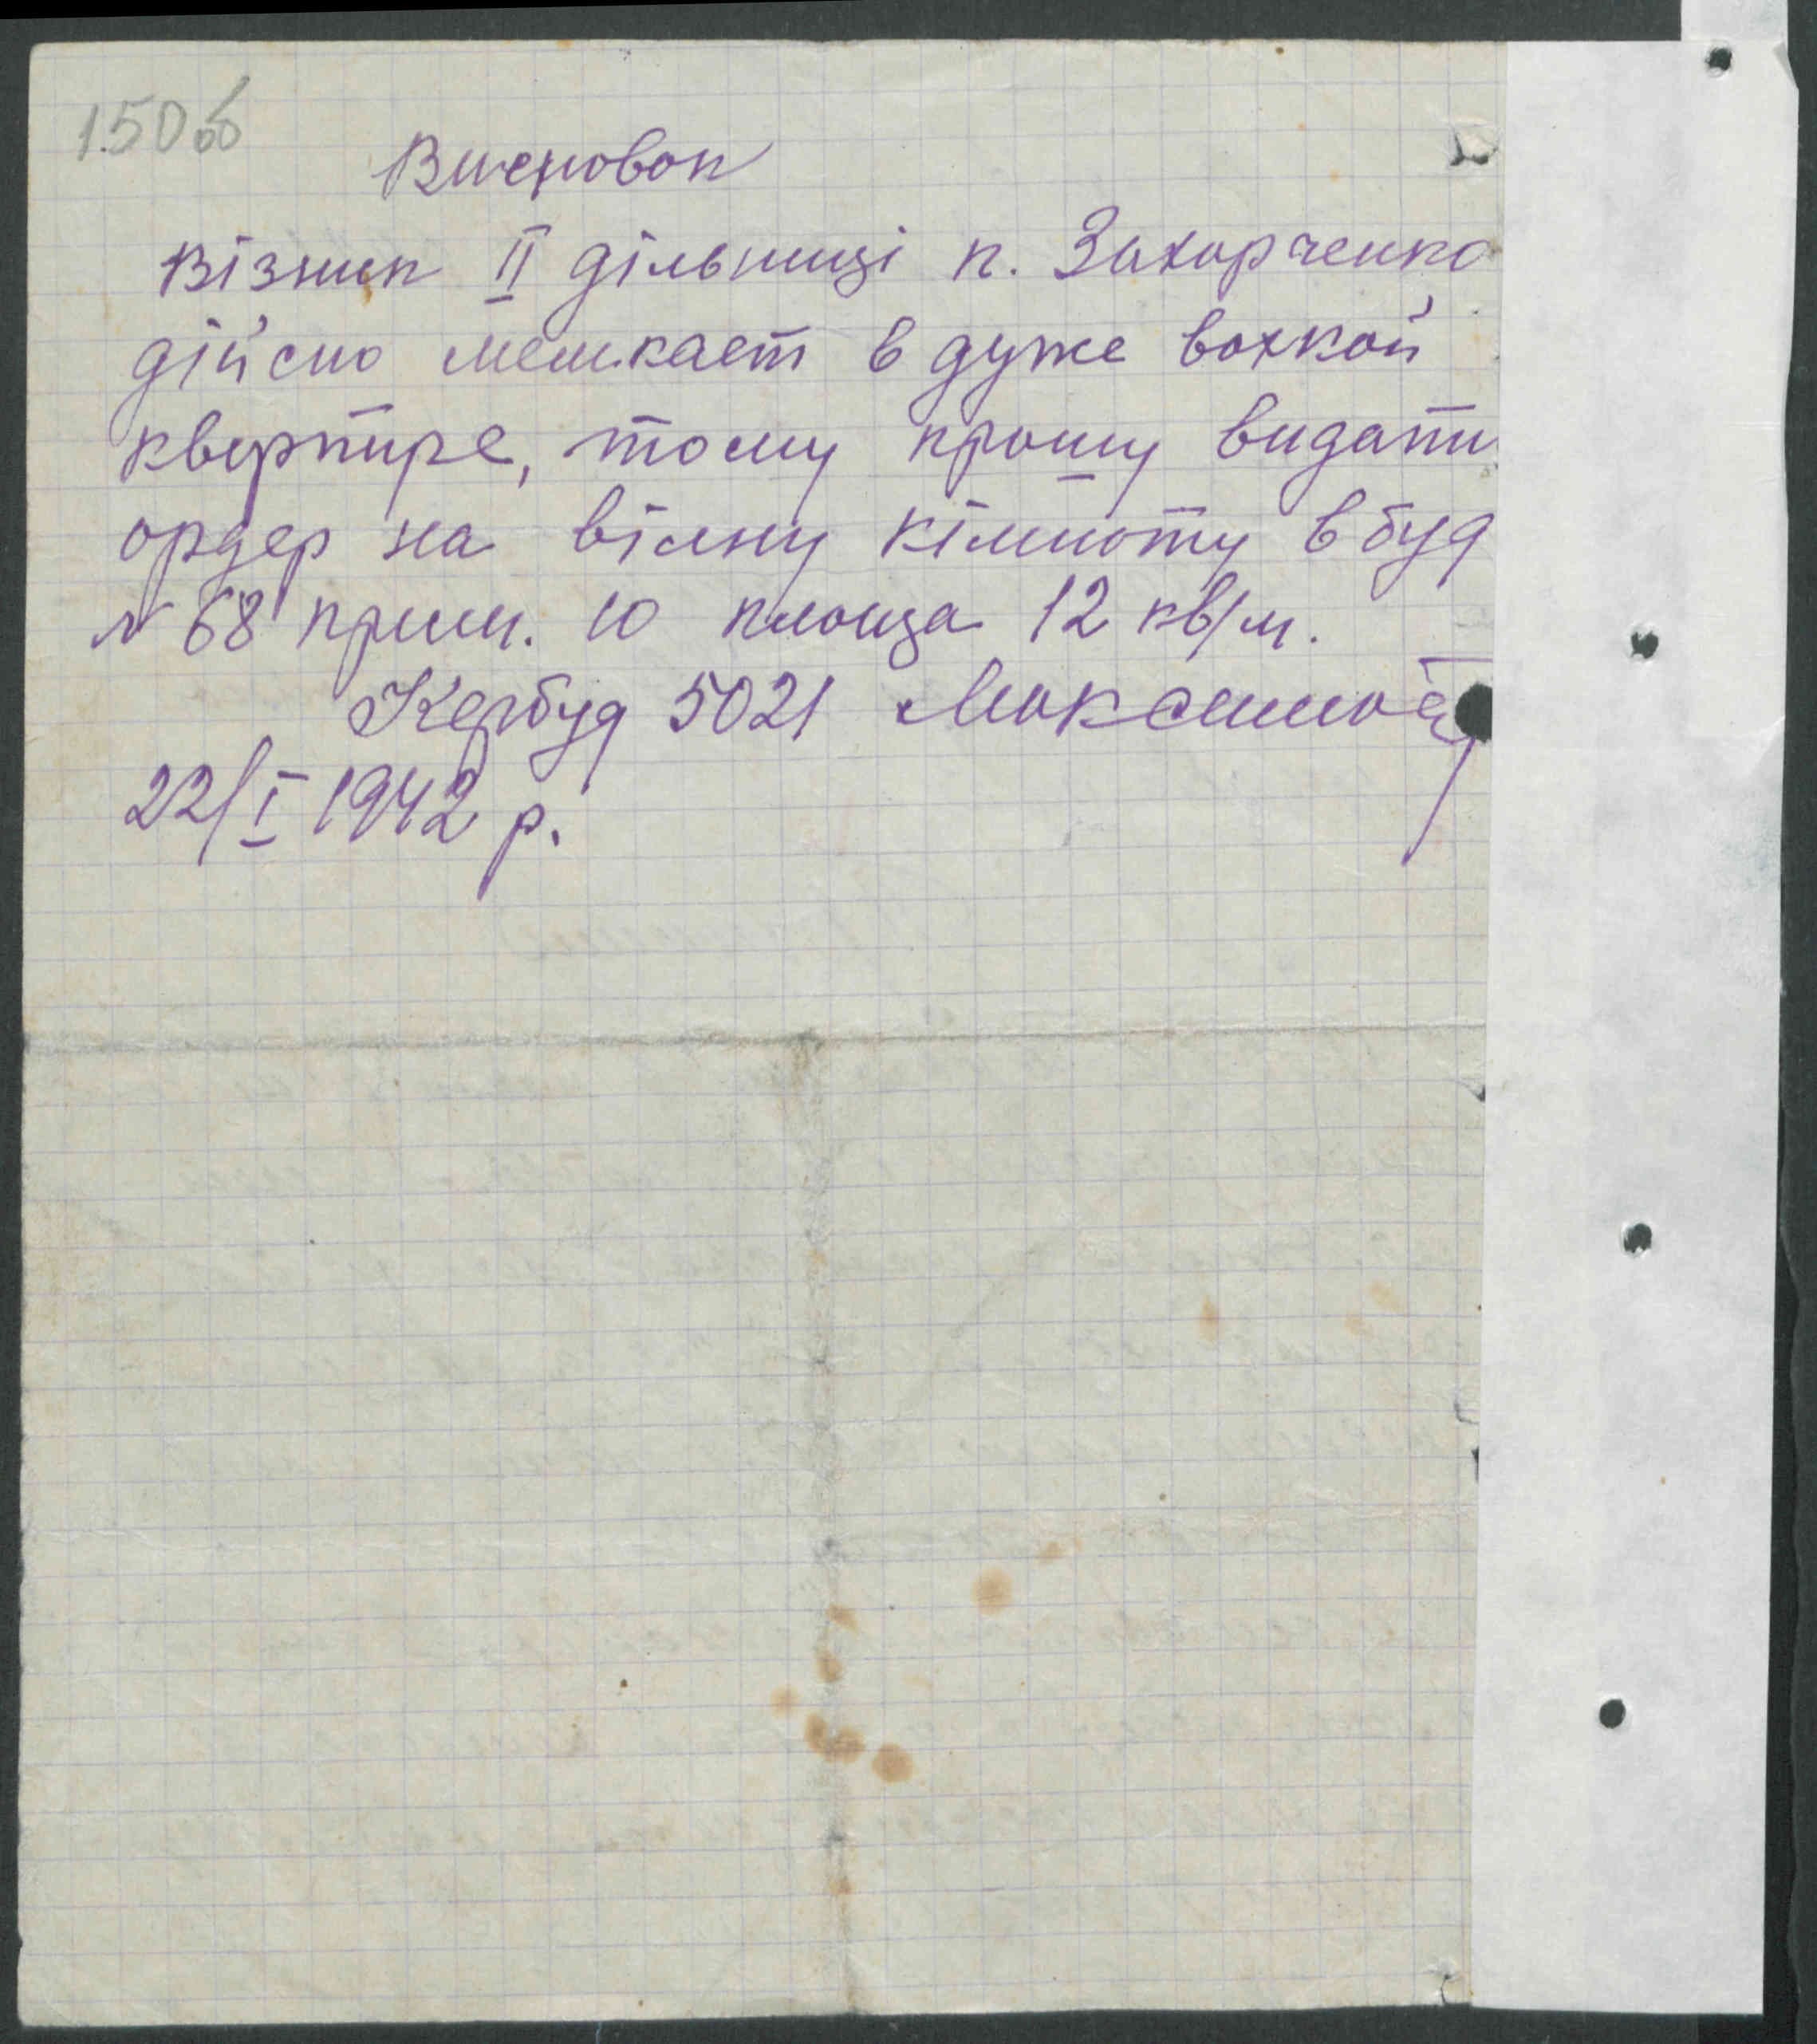 150об
Висновок
Візник II дільниці п. Захарченко
дійсно мешкает в дуже вохкой
квартире, тому прошу видати
ордер на вілну кімноту в буд
N 68 прим. 10 площа 12 кв/м.
Кербуд 5021
22/I 1942 р.